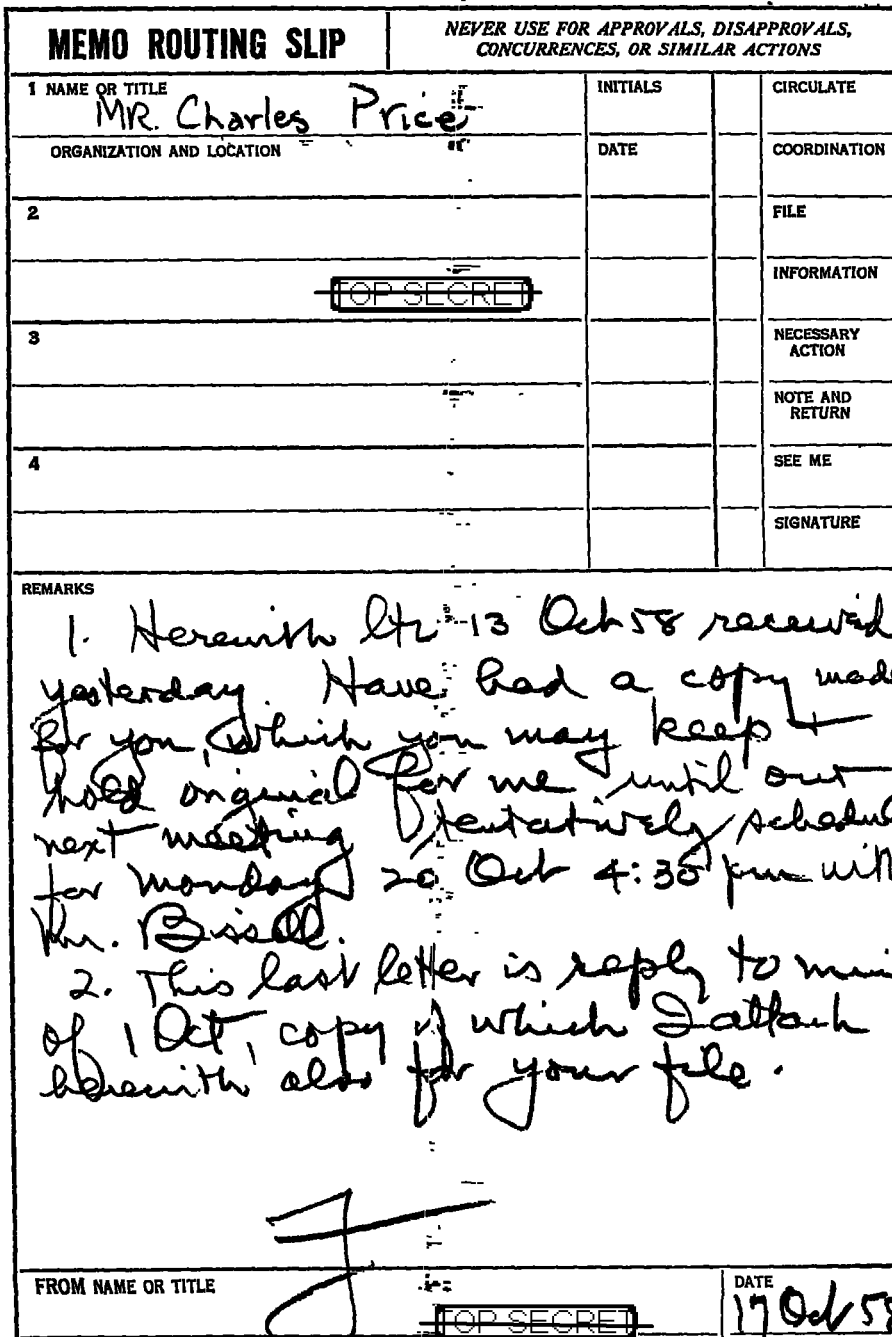 MEMO ROUTING SLIP
NEVER USE FOR APPROVALS, DISAPPROVALS,
CONCURRENCES, OR SIMILAR ACTIONS
1 NAME OR TITLE
MR. Charles Price
INITIALS
CIRCULATE
ORGANIZATION AND LOCATION
DATE
COORDINATION
2
FILE
INFORMATION
TOP SECRET
3
NECESSARY
ACTION
NOTE AND
RETURN
4
SEE ME
SIGNATURE
REMARKS
1. Herewith ltr 13 Oct 58 received
yesterday. Have had a copy made
for you, which you may keep +
hold original for me until our
next meeting tentatively schedul
for Monday 20 Oct 4:30 pm with
Mr. Bissell.
2. This last letter is reply to min
of 1 Oct, copy of which I attach
herewith also for your file.
J
FROM NAME OR TITLE
DATE
TOP SECRET
17 Oct 58